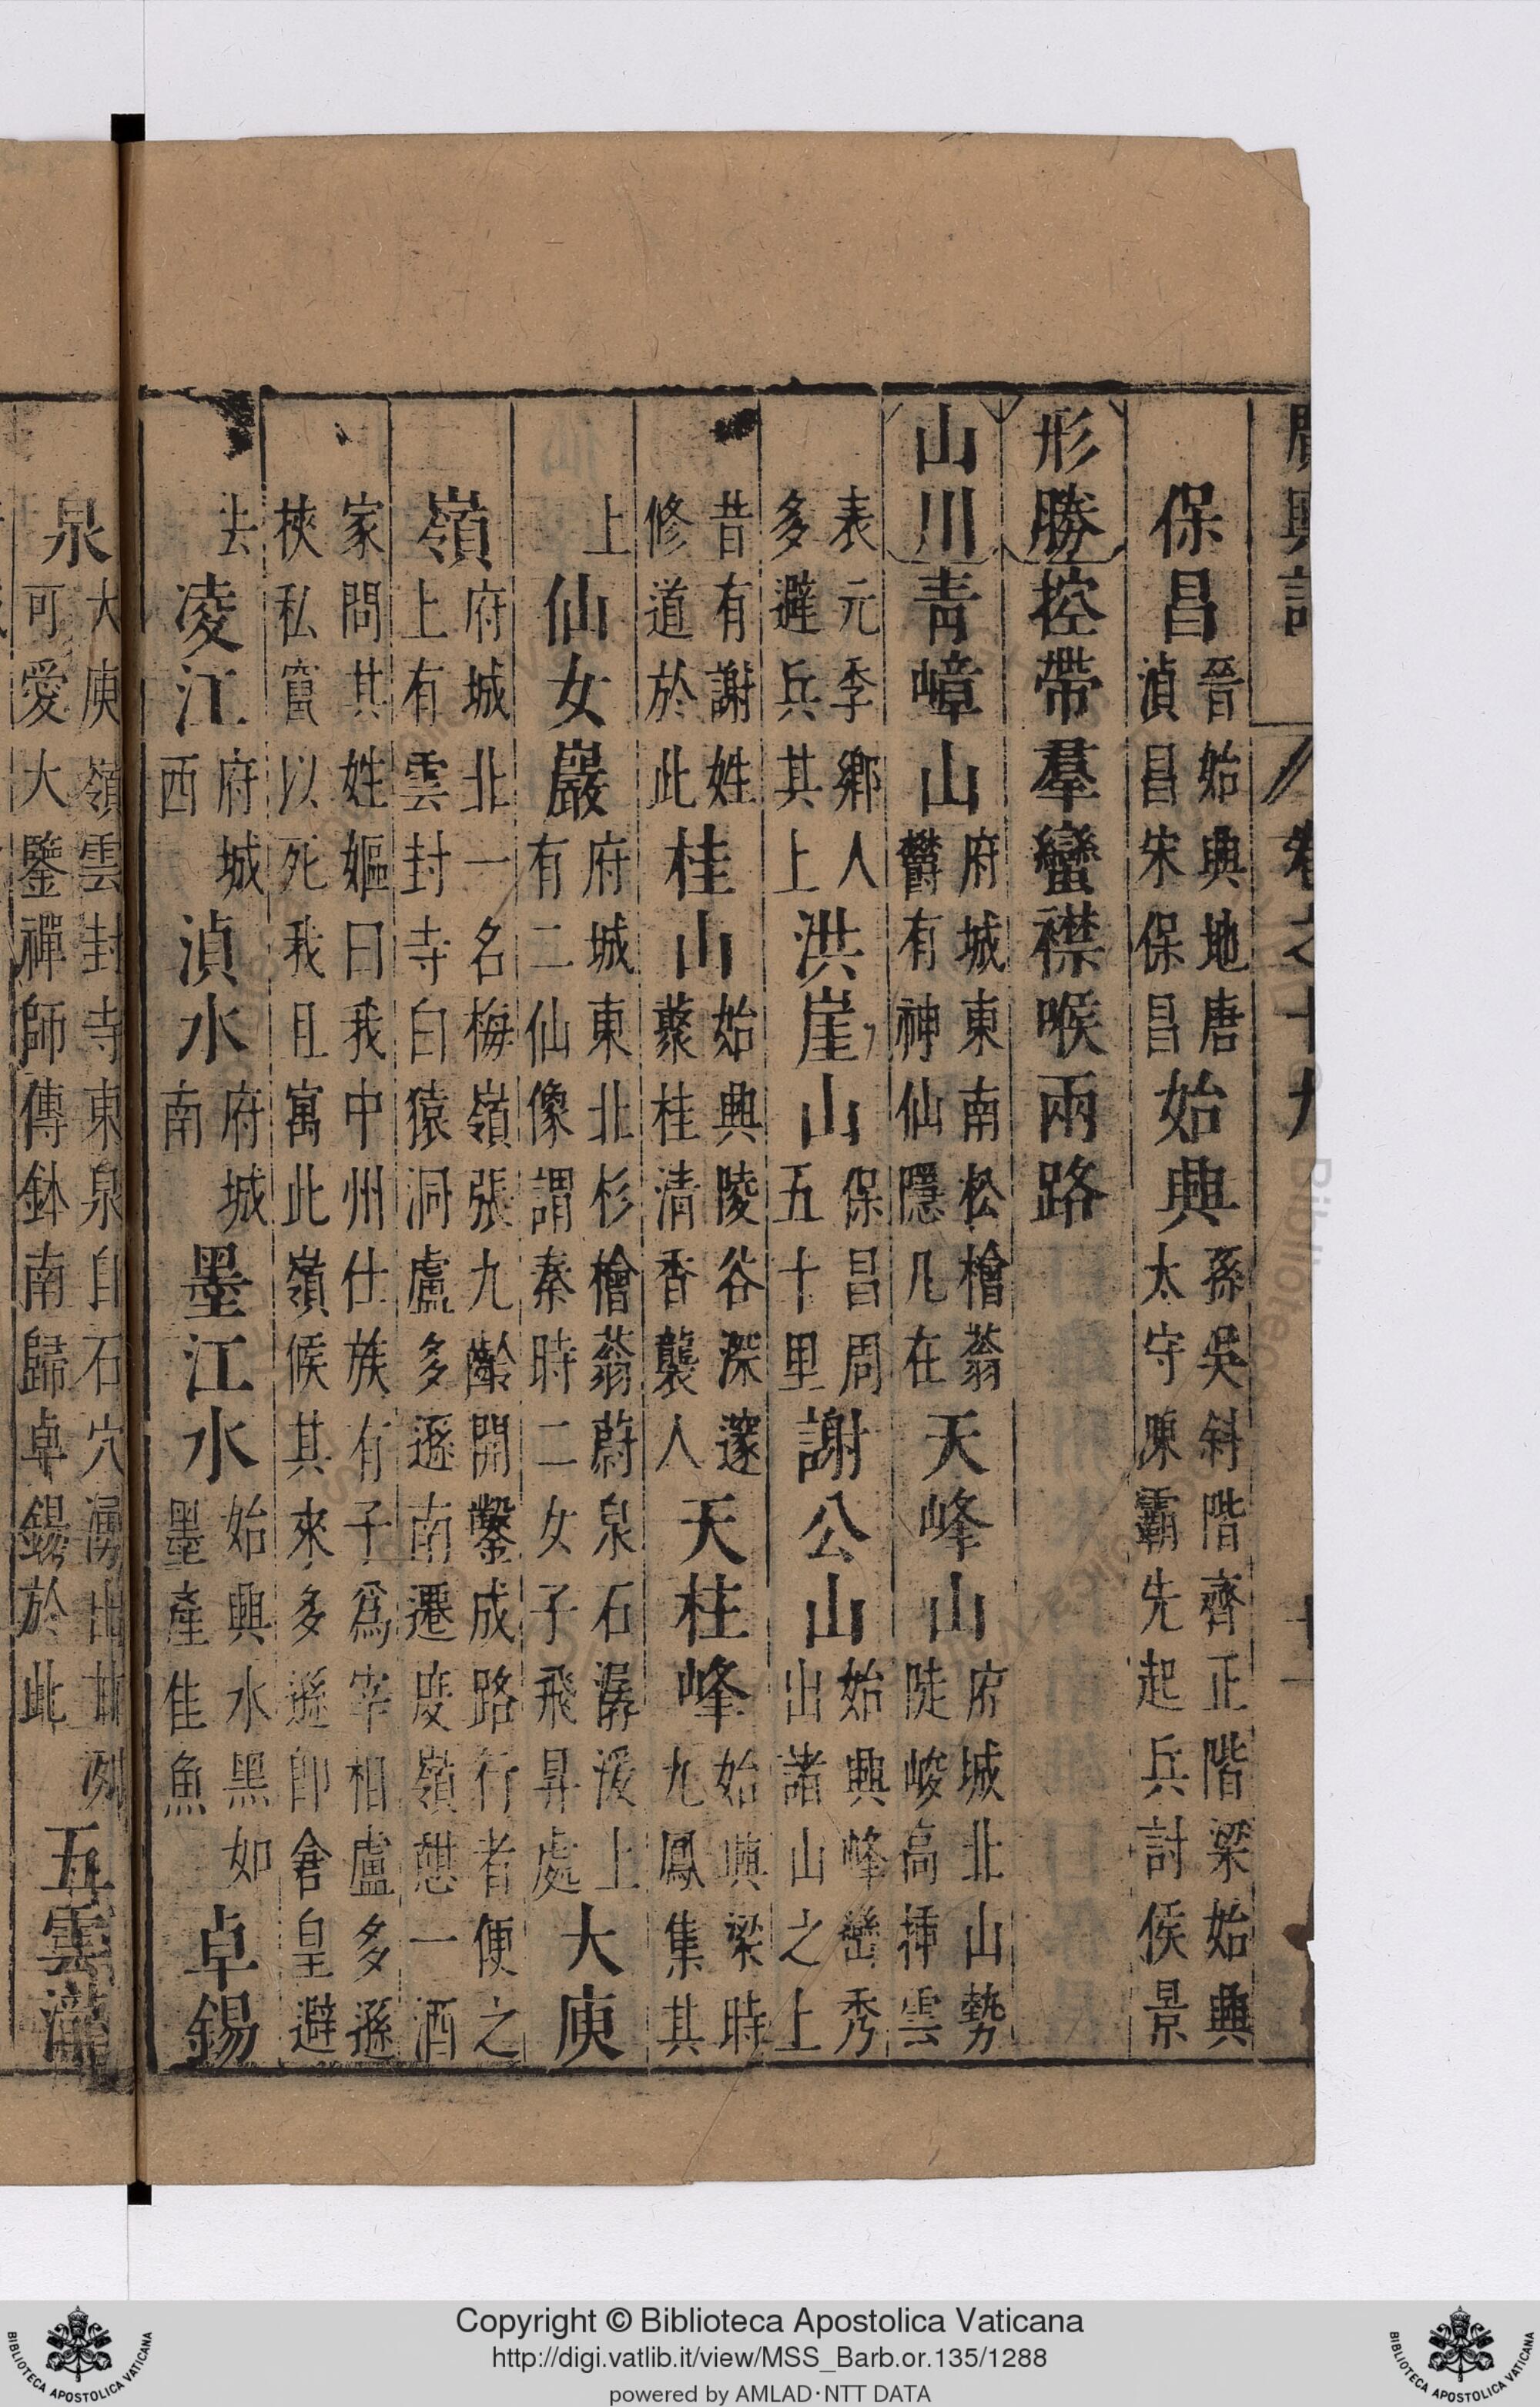 保昌晉始興地唐湞昌宋保昌始興孫吳斜階齊正階梁始興太守陳霸先起兵討侯景
形勝控帶羣蠻襟喉兩路
山川青嶂山府城東南松檜蓊欝有神仙隱几在天峰山府城北山勢陡峻高挿雲
表元季鄉人多避兵其上洪崖山保昌周五十里謝公山始興峰巒秀出諸山之上
昔有謝姓修道於此桂山始興陵谷深邃藂桂清香襲人天柱峰始興梁時九鳳集其
上仙女巖府城東北杉檜蓊蔚泉石潺湲上有二仙像謂秦時二女子飛昇處大庾
嶺府城北一名梅嶺張九齡開鑿成路行者便之上有雲封寺白猿洞盧多遜南遷度嶺憩一酒
家問其姓嫗曰我中州仕族有子爲宰相盧多遜挾私竄以死我且寓此嶺候其來多遜卽倉皇避
去凌江府城西湞水府城南墨江水始興水黑如墨產佳魚卓錫
泉大庾嶺雲封寺東泉自石穴湧出甘冽可愛大鑒禪師傳鉢南歸卓錫於此五雲瀧
廣輿記
卷之十九
十一
Copyright © Biblioteca Apostolica Vaticana
http://digi.vatlib.it/view/MSS_Barb.or.135/1288
powered by AMLAD·NTT DATA
BIBLIOTECA APOSTOLICA VATICANA
BIBLIOTECA APOSTOLICA VATICANA